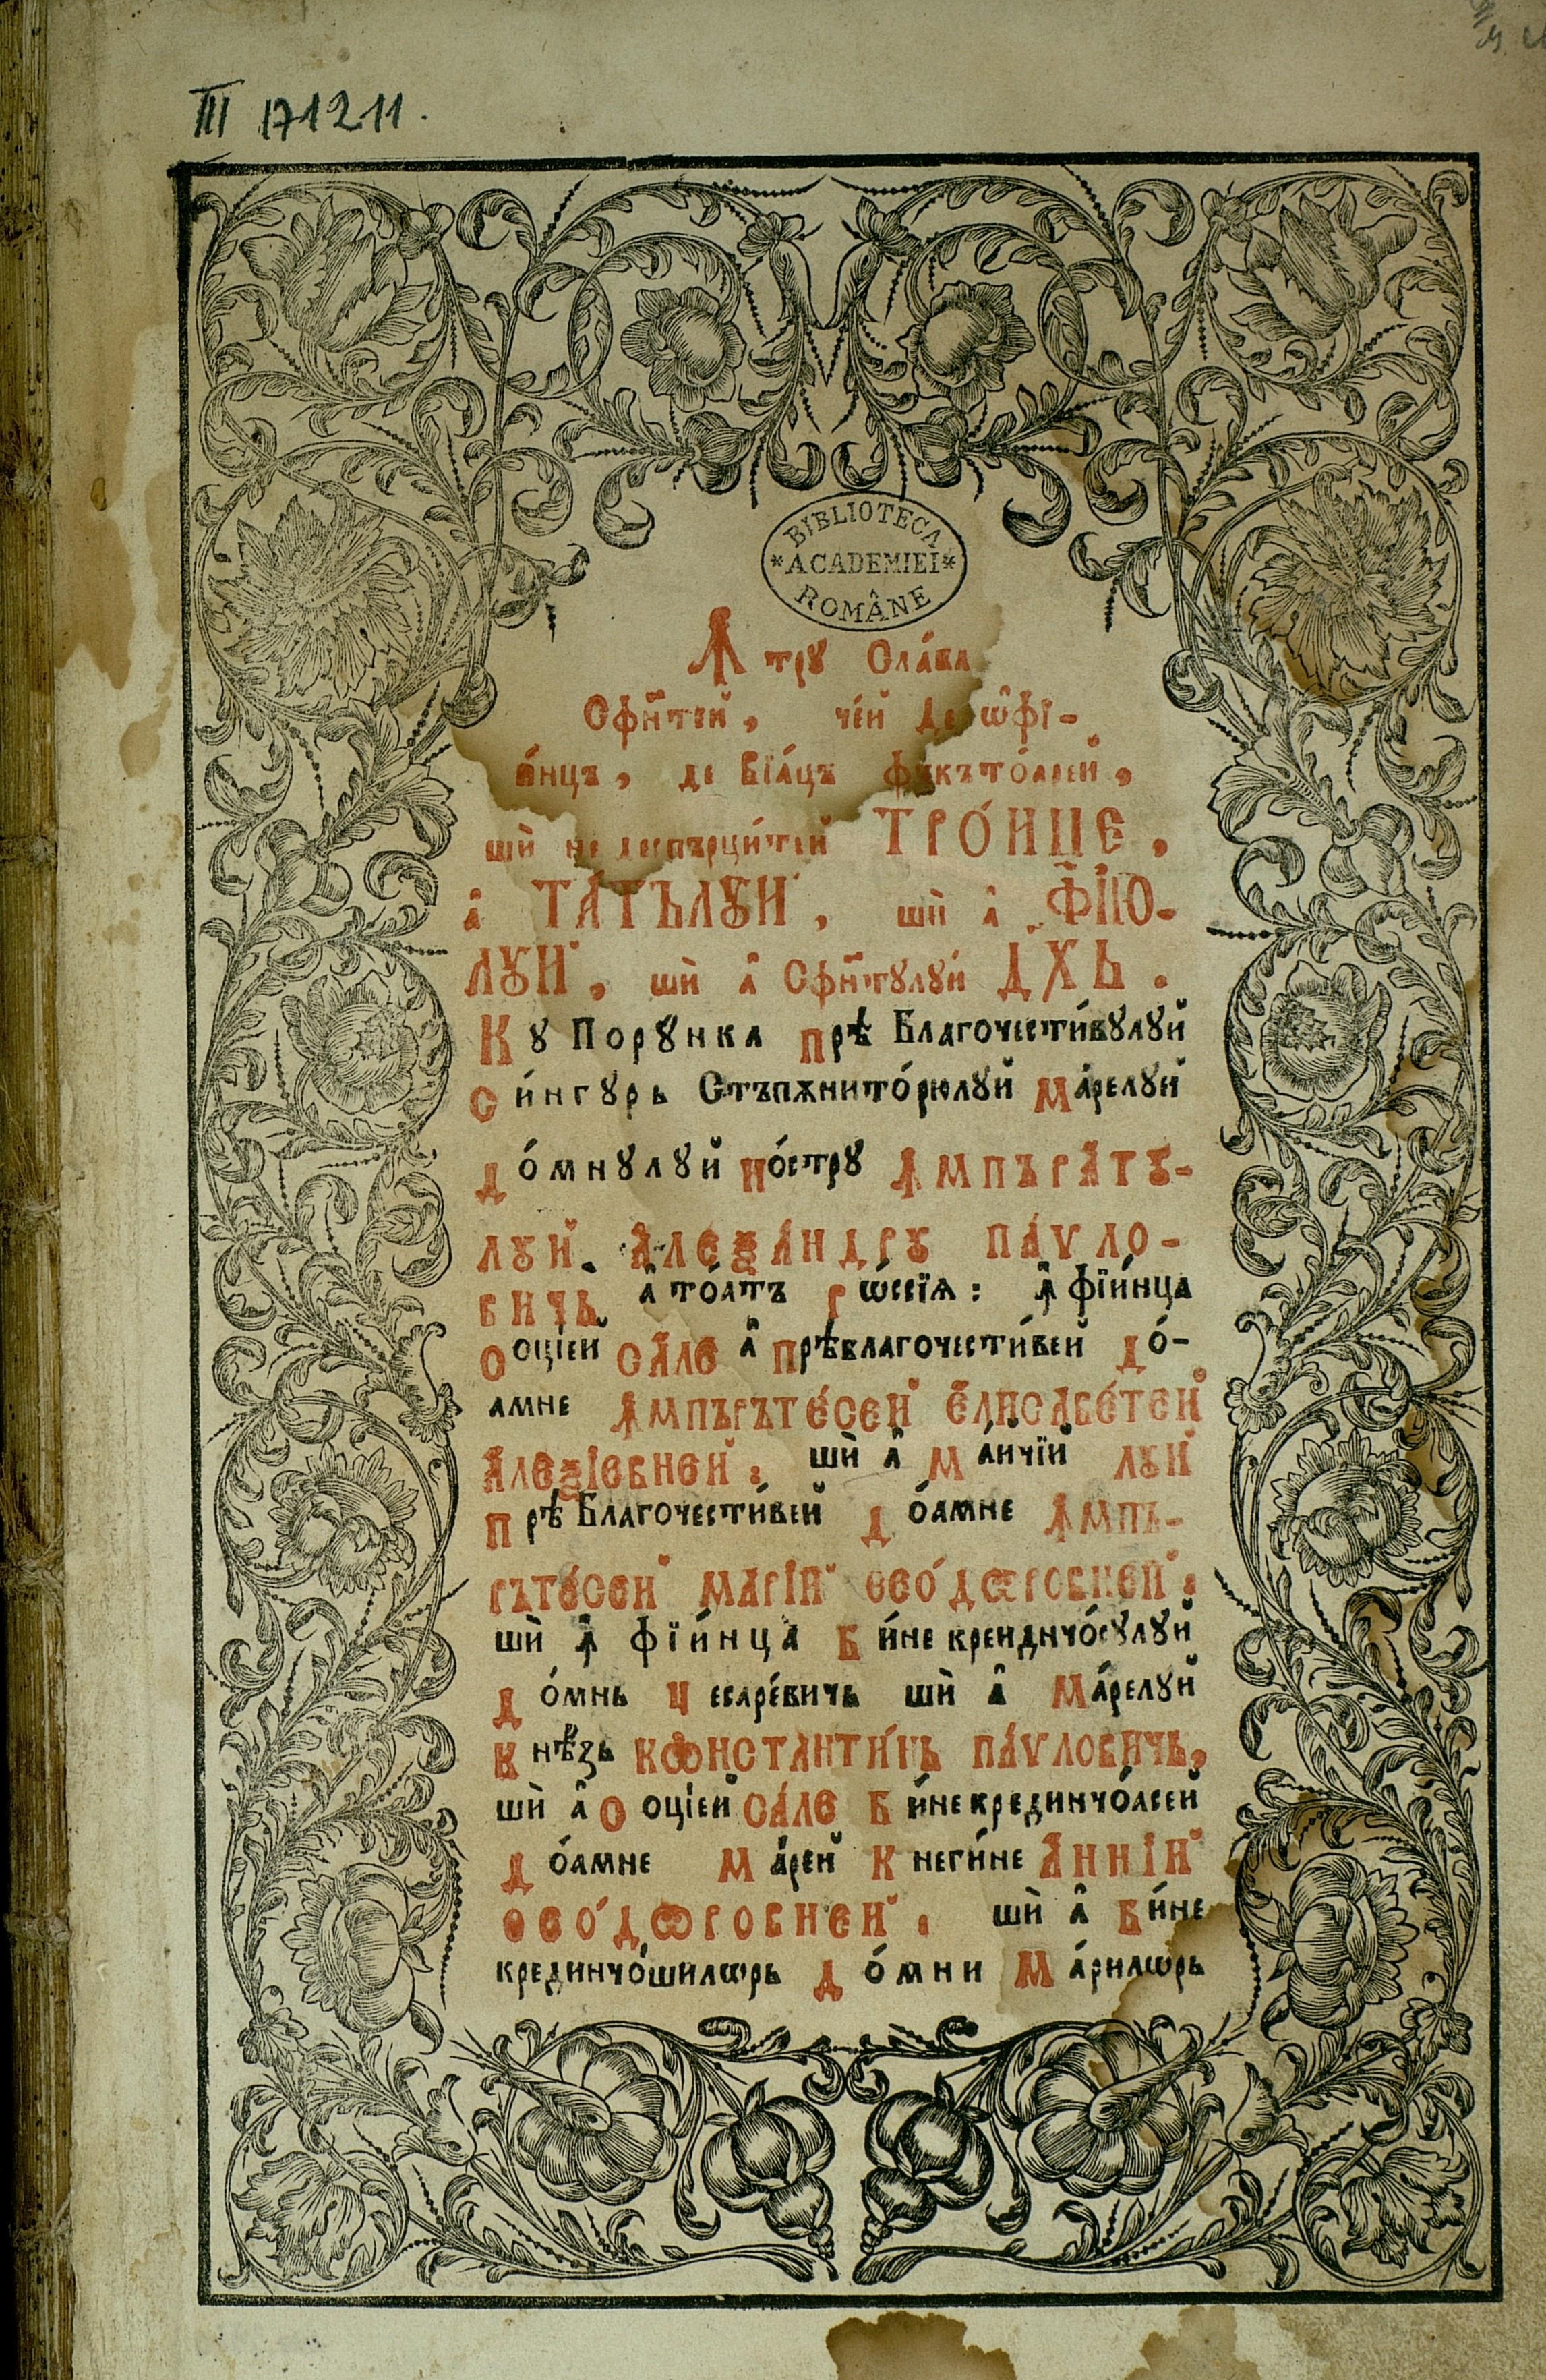 III 171211.
BIBLIOTECA
*ACADEMIEI*
ROMÂNE
Ꙟ трꙋ Сла́ва
Сфи҃нтей, че́й де ѡ҆фї-
и́нцъ, де вїа́цъ фъкъто́арей,
шѝ недеспърци́тей ТРО́ИЦЕ,
а҆ ТА́ТЪЛꙊЙ, шѝ а҆ ФЇЮ-
ЛꙊЙ, шѝ а҆ Сфи҃нтꙋлꙋй ДХЬ.
Кꙋ Порꙋнка прѣ Благочести́вꙋлꙋй
си́нгꙋрь Стъпѫнито́рюлꙋй ма́релꙋй
до́мнꙋлꙋй но́стрꙋ ꙞМПЪРА́ТꙊ-
ЛꙊЙ, А҆ЛЕѮА́НДРꙊ ПА́ѴЛО-
ВИЧЬ а҆ то́атъ рѡ́ссїѧ: ꙟ҆ фїи́нца
соцїей СА́ЛЕ а҆ прѣблагочести́вей до́-
амне ꙞМПЪРЪТЕ́СЕЙ Е҆ЛИСАВЕ́ТЕЙ
А҆ЛЕѮІЕВНЕЙ: шѝ а҆ ма́йчїй ЛꙊЙ
прѣ Благочести́вей до́амне ꙞМПЪ-
РЪТЕ́СЕЙ МАРІЙ ѲЕО́ДѠРОВНЕЙ:
шѝ ꙟ҆ фїи́нца би́не крединчо́сꙋлꙋй
до́мнь цесаре́вичь шѝ а҆ ма́релꙋй
кнѣ́зь КѠНСТАНТИ́НЬ ПА́ѴЛОВИЧЬ,
шѝ а҆ соцїей СА́ЛЕ би́не крединчо́асей
до́амне ма́рей кнеги́не А҆ННІЙ
ѲЕО́ДѠРОВНЕЙ: шѝ а҆ би́не
крединчо́шилѡрь до́мни ма́рилѡрь